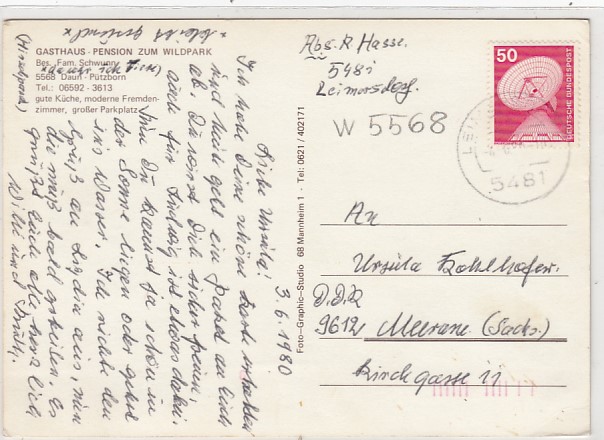 GASTHAUS - PENSION ZUM WILDPARK
Bes. Fam. Schwunn
5568 Daun - Pützborn
Tel.: 06592 · 3613
gute Küche, moderne Fremden-
zimmer, großer Parkplatz
(Hirschpark)
3.6.1980
Liebe Ursula!
Ich habe Deine schöne Karte erhalten
und heute geht ein Paket an Euch
ab. Du wirst Dich sicher freuen,
auch für Ludwig ist etwas dabei.
Nun Du kannst ja schön in
der Sonne liegen oder gehst
ins Wasser. Ich nicht den
Gruß an Lydia aus, nun
die muß bald Es
grüßt Euch alle herzlich
Willi und
Foto-Graphic-Studio 68 Mannheim 1 · Tel: 0621/402171
Abs. R. Hasse.
5481
Leimersdorf.
W 5568
50
DEUTSCHE BUNDESPOST
5481
An
Ursula Kohlhofer.
D.D.R
9612 Meerane (Sachs.)
Kirchgasse 11